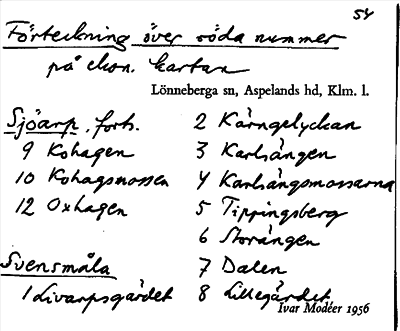 54
Förteckning över röda nummer
på ekon. kartan
Lönneberga sn, Aspelands hd, Klm. l.
Sjöarp, forts.
9 Kohagen
10 Kohagsmossen
12 Oxhagen
Svensmåla
1 Livarpsgärdet
2 Kärngelyckan
3 Karlsängen
4 Karlsängsmossarna
5 Tippingsberg
6 Storängen
7 Dalen
8 Lillegärdet
Ivar Modéer 1956